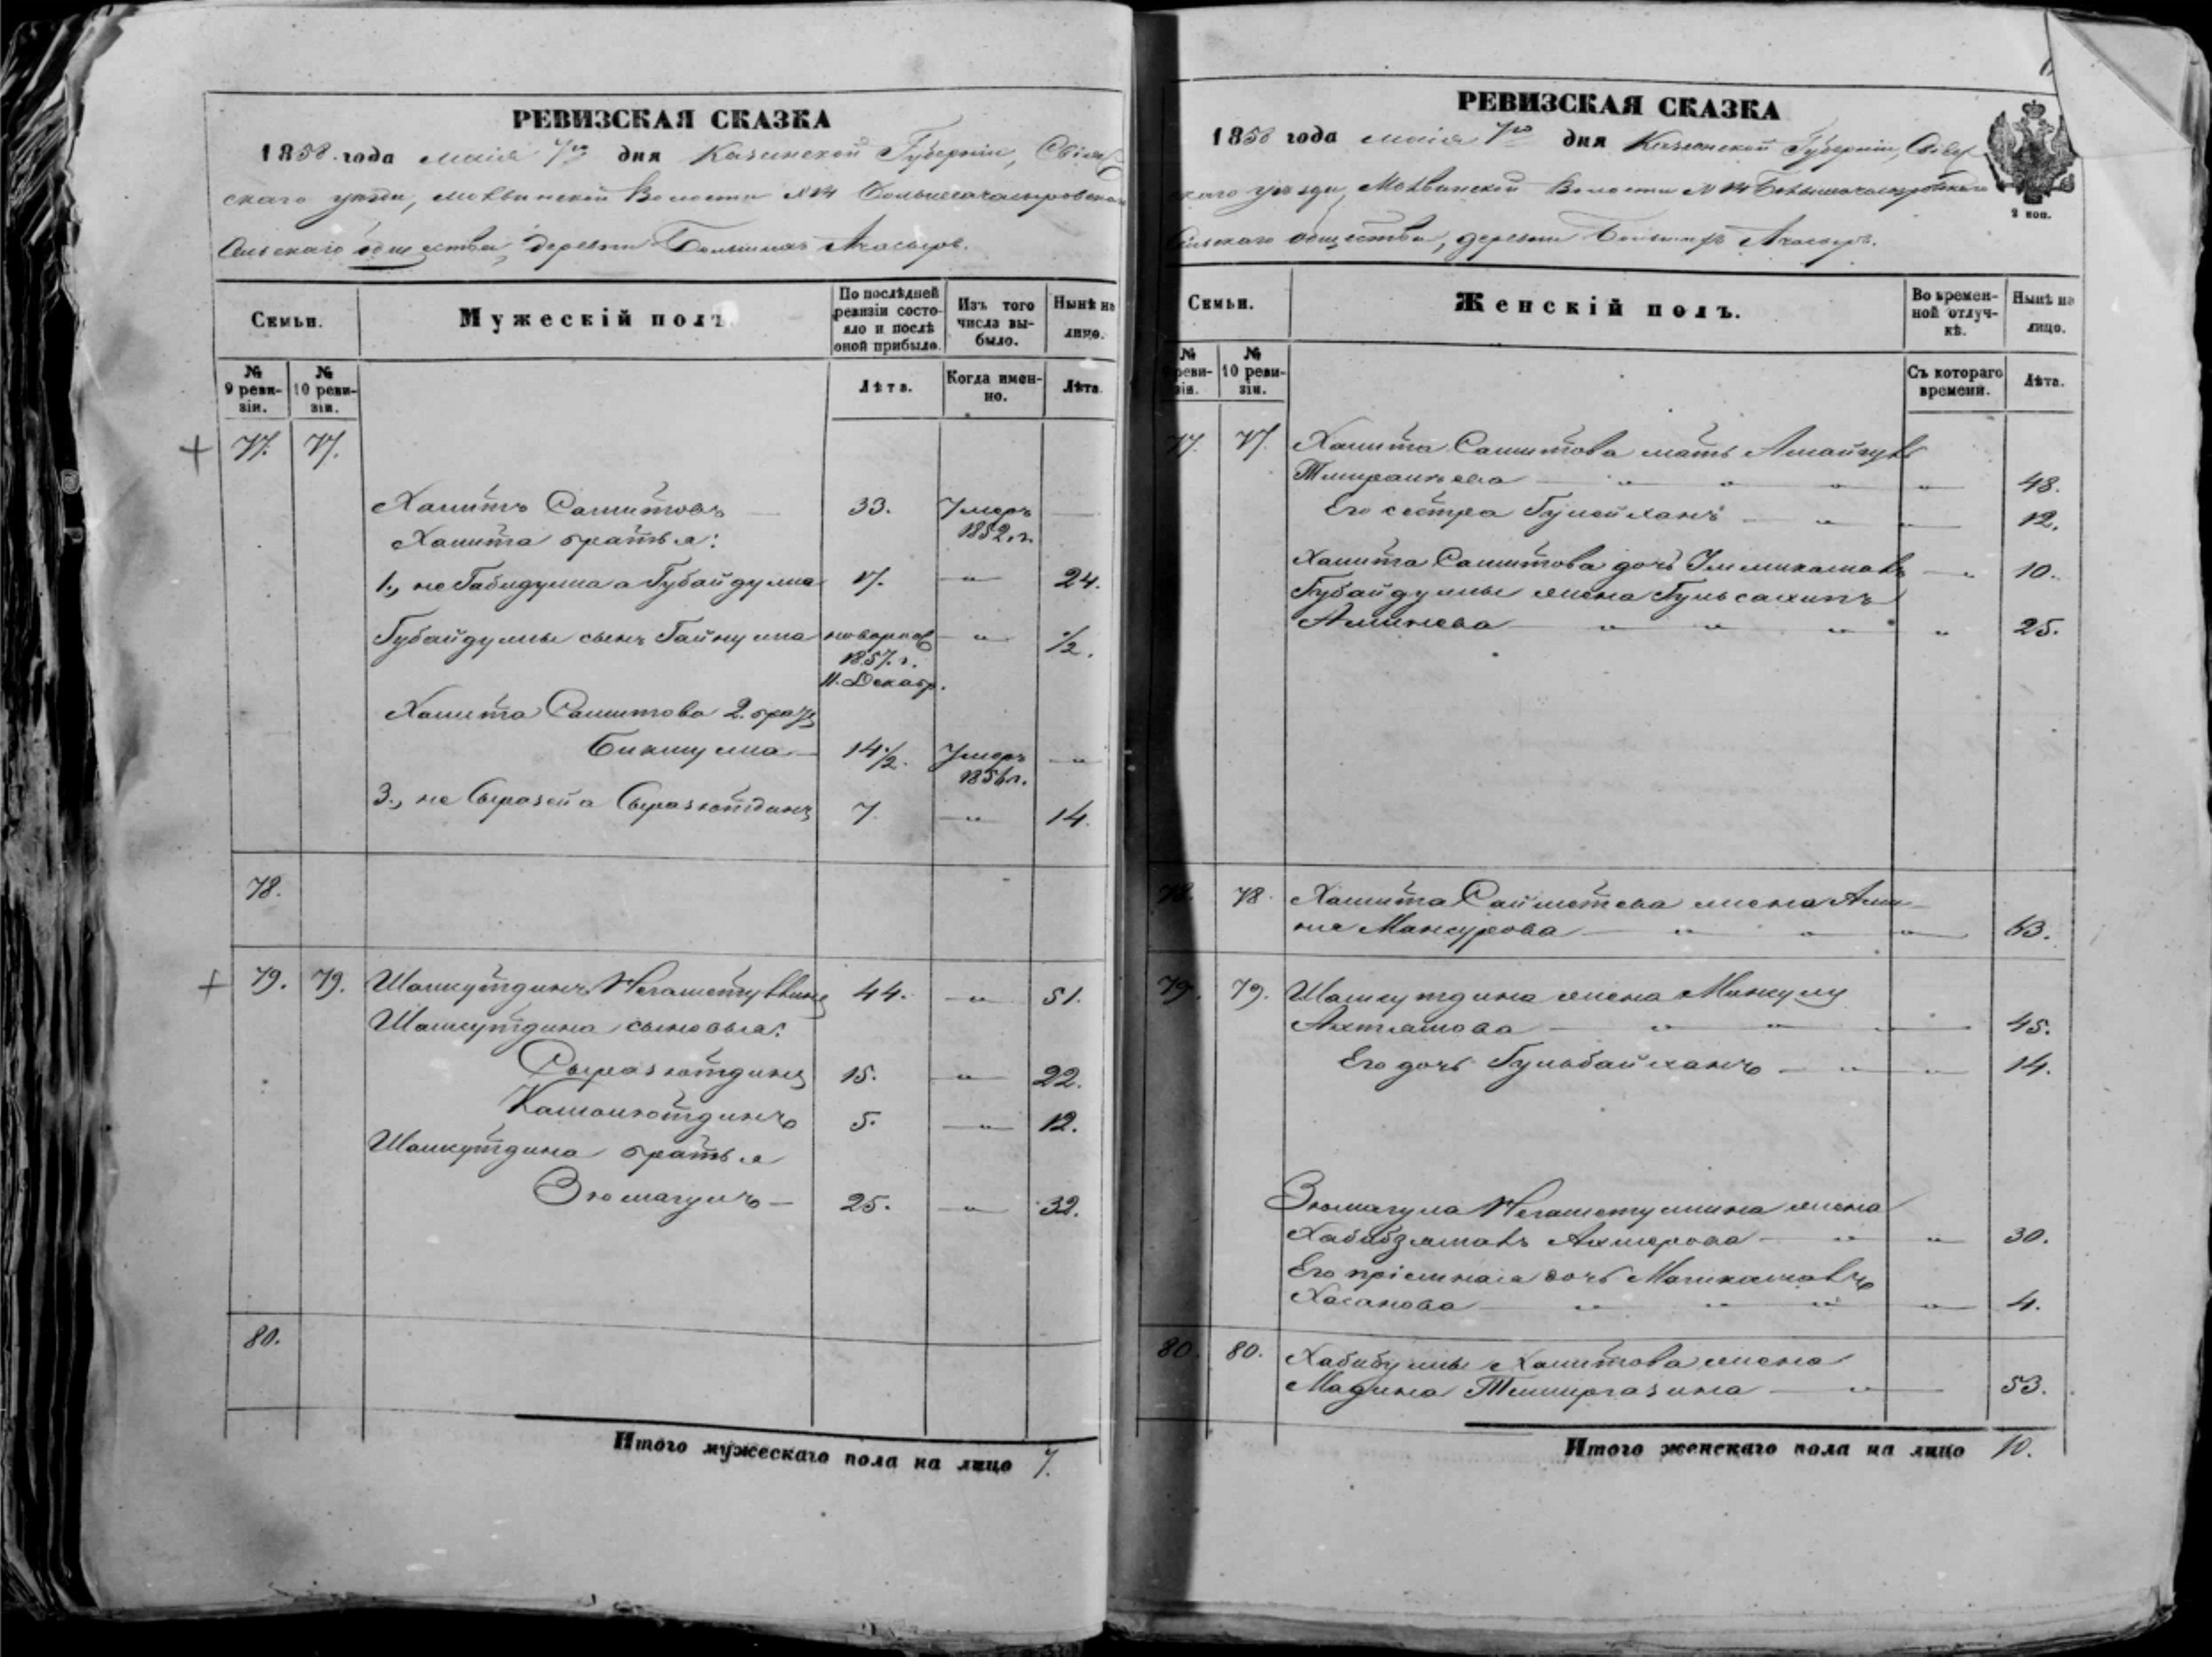 РЕВИЗСКАЯ СКАЗКА
1858 года маія 7го дня Казанской Губерніи, Свіяж
скаго уезда, Волости № 14
Сельскаго общества, деревни Большихъ Ачасыръ.
Семьи.
Мужескій полъ.
По послѣдней ревизіи состояло и послѣ оной прибыло.
Изъ того числа выбыло.
Нынѣ на лицо.
№ 9 ревизіи.
№ 10 ревизіи.
Лѣта.
Когда именно.
Лѣта.
77. 77.
Хамитъ Самитовъ 33. Умеръ 1852. г.
Хамита братья:
1., не Габидулла а Губайдулла 17. — " — 24.
Губайдуллы сынъ Гайнулла новорож 1857. г. 11. Декабр. — " — 1/2.
Хамита Самитова 2. братъ
Бикмулла 14 1/2. Умеръ 1856 г. — " —
3., не Сыразей а Сыразютдинъ 7. — " — 14.
78.
79. 79. Шамкутдинъ 44. — " — 51.
Шамкутдина сыновья:
Сыразютдинъ 15. — " — 22.
Камалютдинъ 5. — " — 12.
Шамкутдина братья
Зюмагулъ — 25. — " — 32.
80.
Итого мужескаго пола на лицо 7.
РЕВИЗСКАЯ СКАЗКА
1858 года маія 7го дня Казанской Губерніи, Свіяж
скаго уезда, Волости № 14
Сельскаго общества, деревни Ачасыръ.
2 коп.
Семьи.
Женскій полъ.
Во временной отлучкѣ.
Нынѣ на лицо.
№ 9 ревизіи.
№ 10 ревизіи.
Съ котораго времени.
Лѣта.
77. 77. Хамита Самитова мать
48.
Его сестра 12.
Хамита Самитова дочь 10.
Губайдуллы жена Гульсахипъ
Аминева 25.
78. 78. Хамита жена Ами-
не Мансурова 63.
79. 79. Шамкутдина жена
45.
Его дочь Гульбайханъ 14.
Зюмагула жена
Ахмерова 30.
Его пріемная дочь
Хасанова 4.
80. 80. Хабибуллы Хамитова жена
Мадина Темиргазина 53.
Итого женскаго пола на лицо 10.